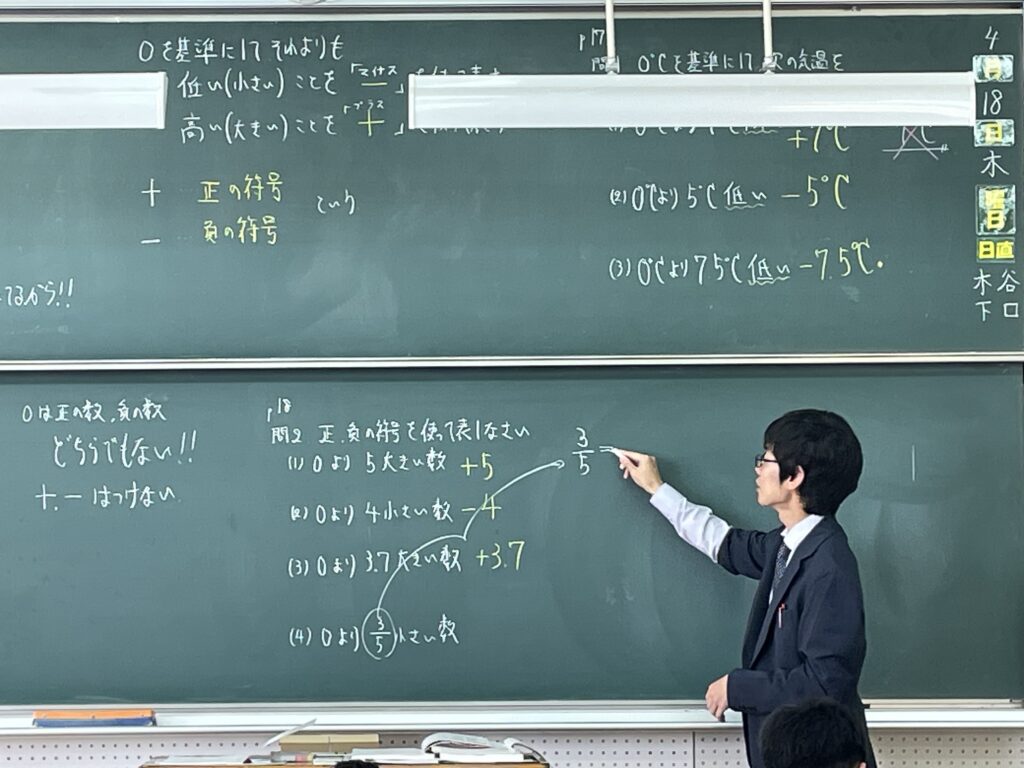 0を基準にして それよりも
低い(小さい)ことを「マイナス −」
高い(大きい)ことを「プラス +」
+ 正の符号
− 負の符号
という
てるから!!
p17
問1 0℃を基準にして、次の気温を
+7℃
(2) 0℃より 5℃低い −5℃
(3) 0℃より 7.5℃低い −7.5℃
4
月
18
日
木
曜日
日直
木谷
下口
0は正の数、負の数
どちらでもない!!
+、− はつけない
p18
問2 正、負の符号を使って表しなさい
(1) 0より 5大きい数 +5
(2) 0より 4小さい数 −4
(3) 0より 3.7大きい数 +3.7
(4) 0より 3/5 小さい数
3/5 =